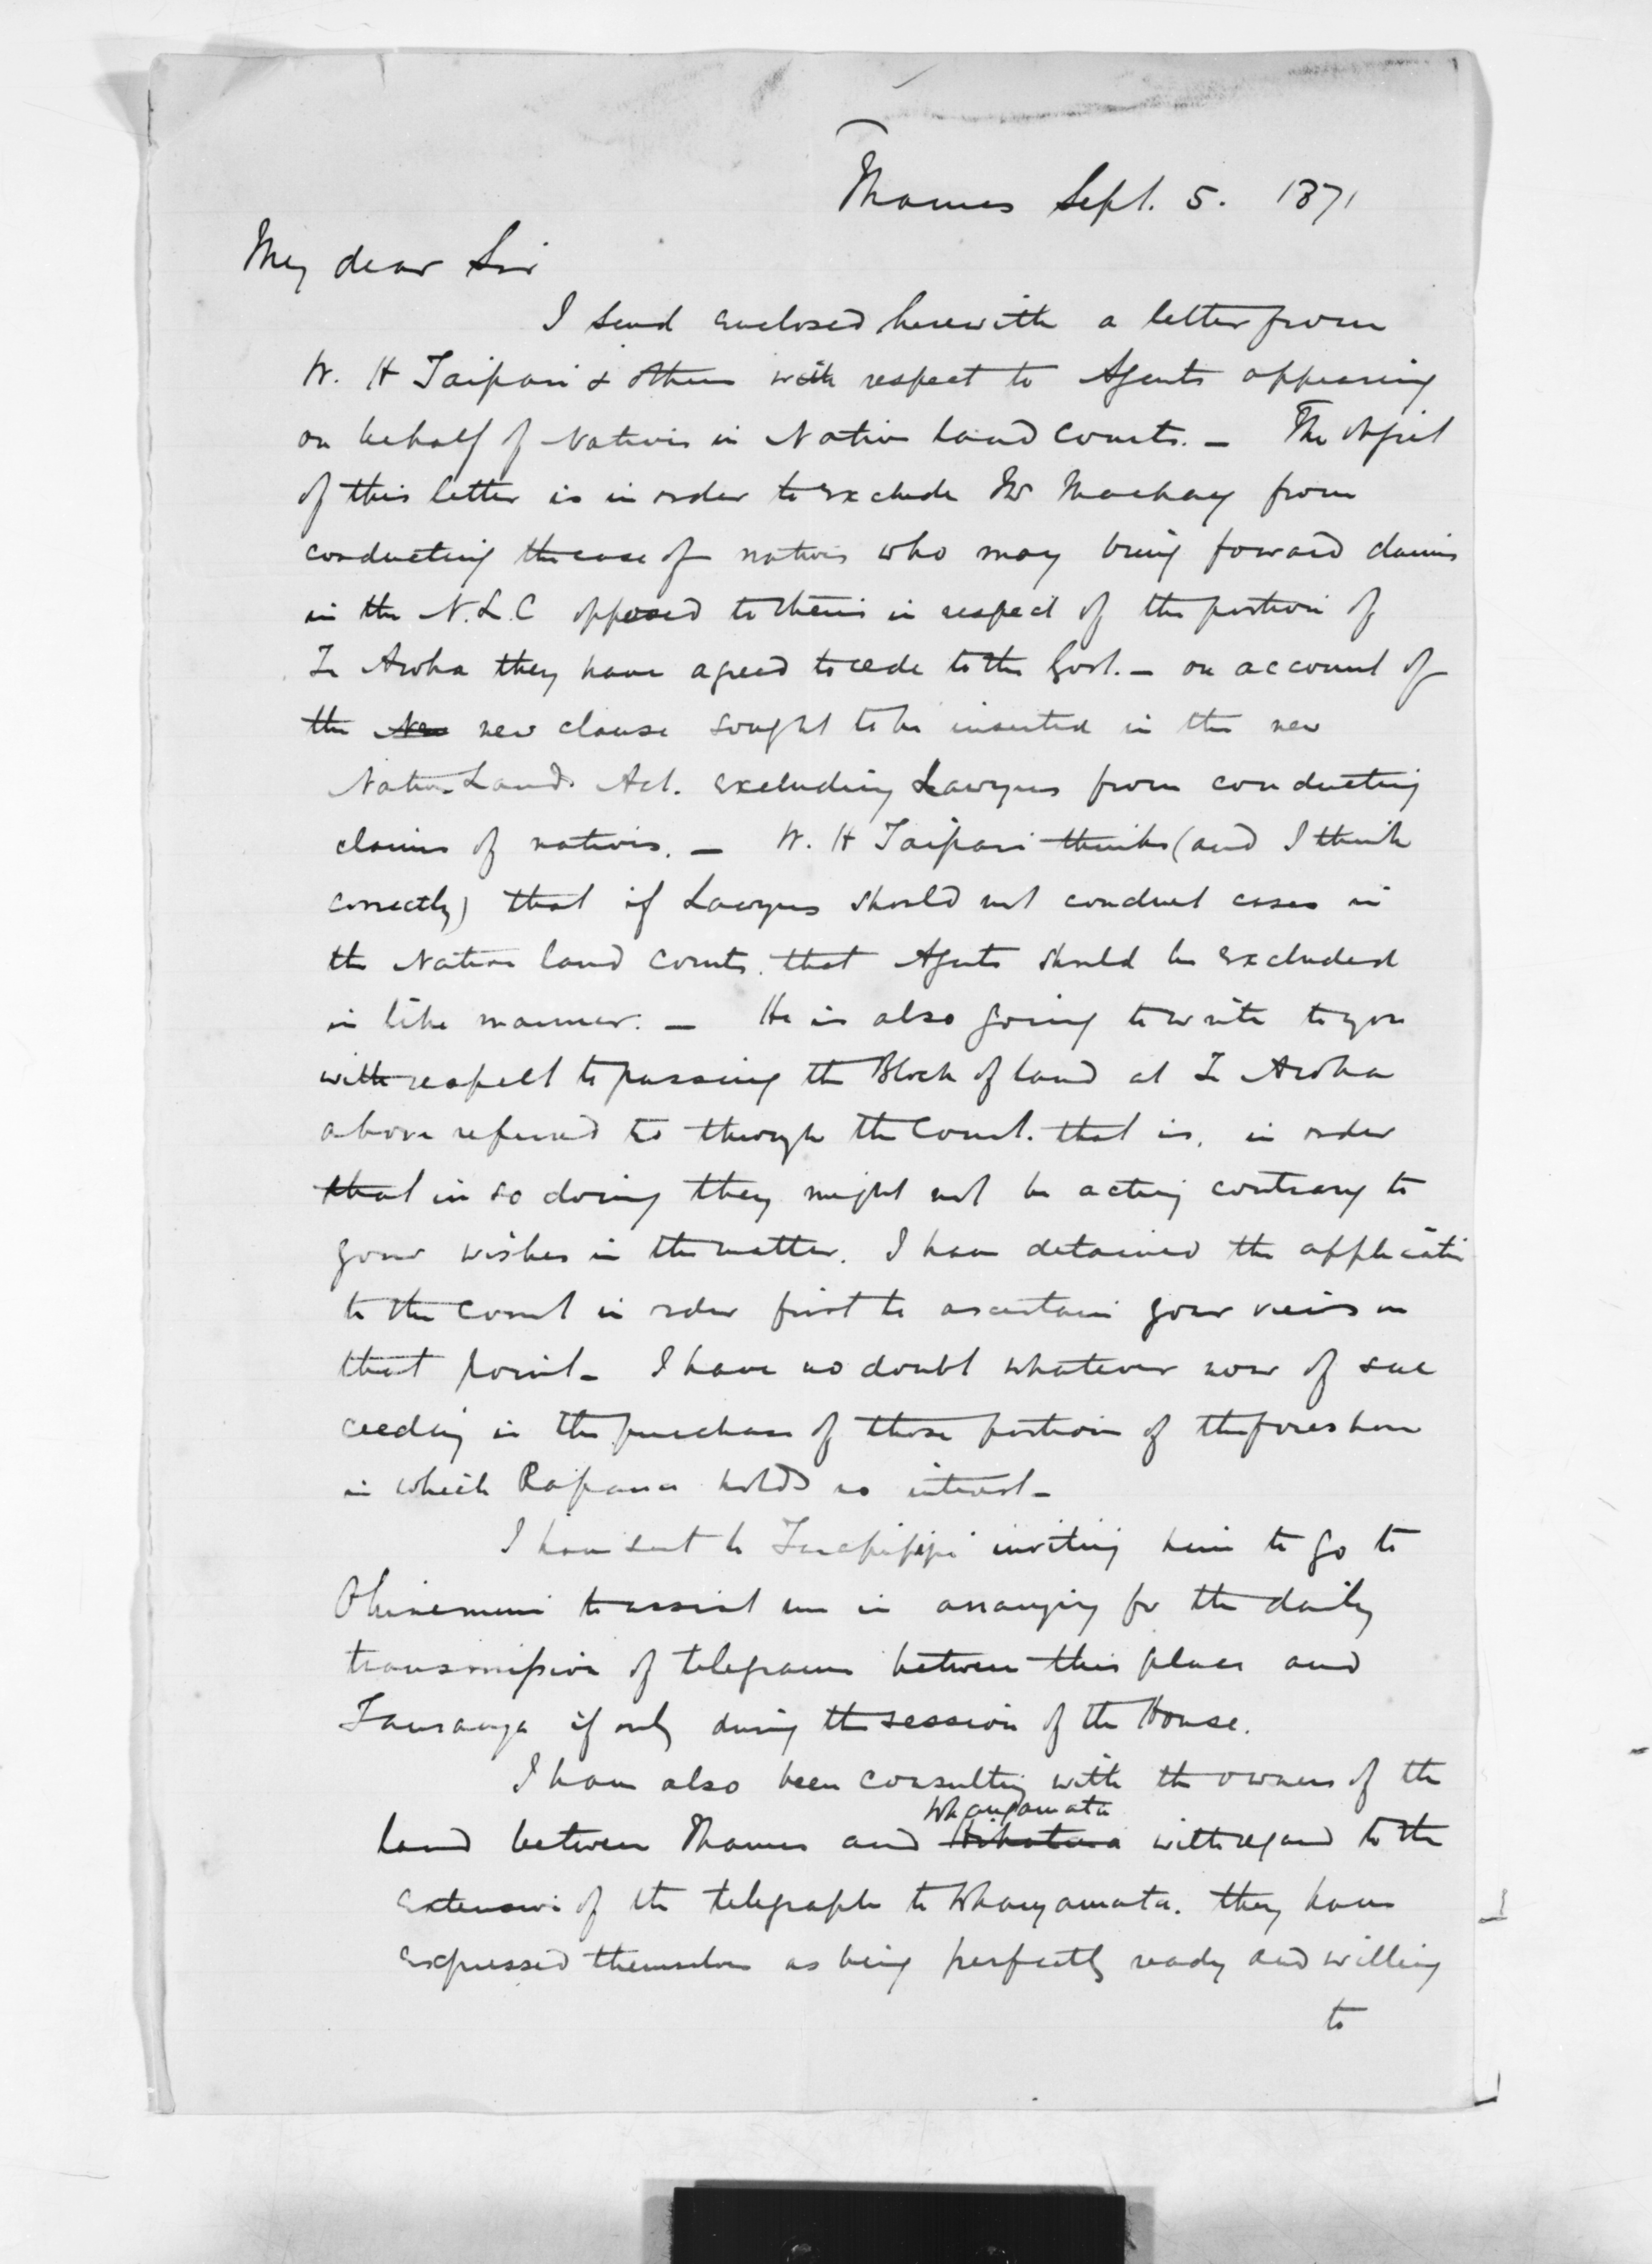 Thames Sept. 5. 1871
My dear Sir
I send enclosed herewith a letter from
W. H Taipari & others with respect to Agents appearing
on behalf of Natives in Native land Courts. — The object
of this letter is in order to exclude Mr Mackay from
conducting the case of natives who may bring forward claims
in the N.L.C opposed to theirs in respect of the portion of
Te Aroha they have agreed to cede to the Govt. — on account of
the New new clause sought to be inserted in the new
Native Lands Act. excluding Lawyers from conducting
claims of natives. — W. H Taipari thinks (and I think
correctly) that if Lawyers should not conduct cases in
the Native land Courts. that Agents should be excluded
in like manner. — He is also going to write to you
with respect to passing the Block of land at Te Aroha
above referred to through the Court. that is, in order
that in so doing they might not be acting contrary to
your wishes in the matter. I have detained the applicatin
to the Court in order first to ascertain your views on
that point — I have no doubt whatever now of suc
ceeding in the purchase of those portions of the foreshore
in which Rapana holds no interest —
I have sent to inviting him to go to
Ohinemuri to assist me in arranging for the daily
transmission of telegrams between this place and
Tauranga if only during the session of the House.
I have also been consulting with the owners of the
Whangamata
land between Thames and Hikutaia with regard to the
extension of the telegraph to Whangamata. they have
expressed themselves as being perfectly ready and willing
to